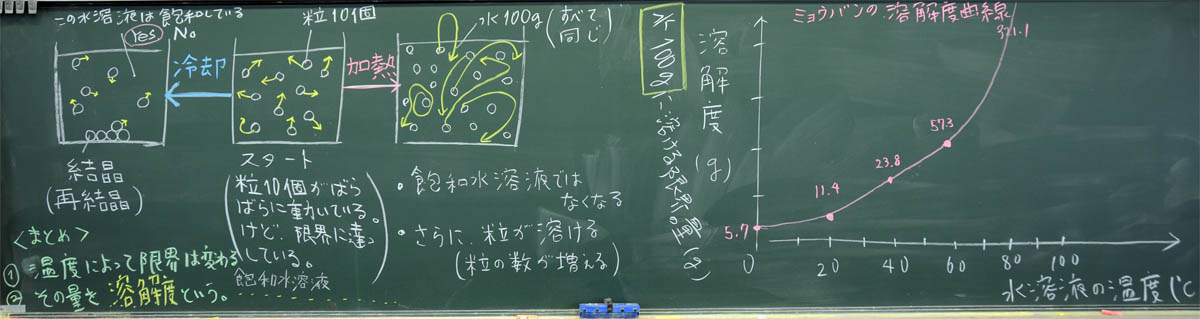 この水溶液は飽和している
Yes No
冷却
結晶
(再結晶)
粒10個
スタート
(粒10個がばら
ばらに動いている。
けど、限界に達
している。)
飽和水溶液
加熱
水100g(すべて同じ)
・飽和水溶液では
なくなる
・さらに、粒が溶ける
(粒の数が増える)
<まとめ>
① 温度によって限界は変わる
② その量を溶解度という。
水100gに溶ける限界量(g)
ミョウバンの溶解度曲線
溶解度(g)
321.1
57.3
23.8
11.4
5.7
0
0 20 40 60 80 100
水溶液の温度(℃